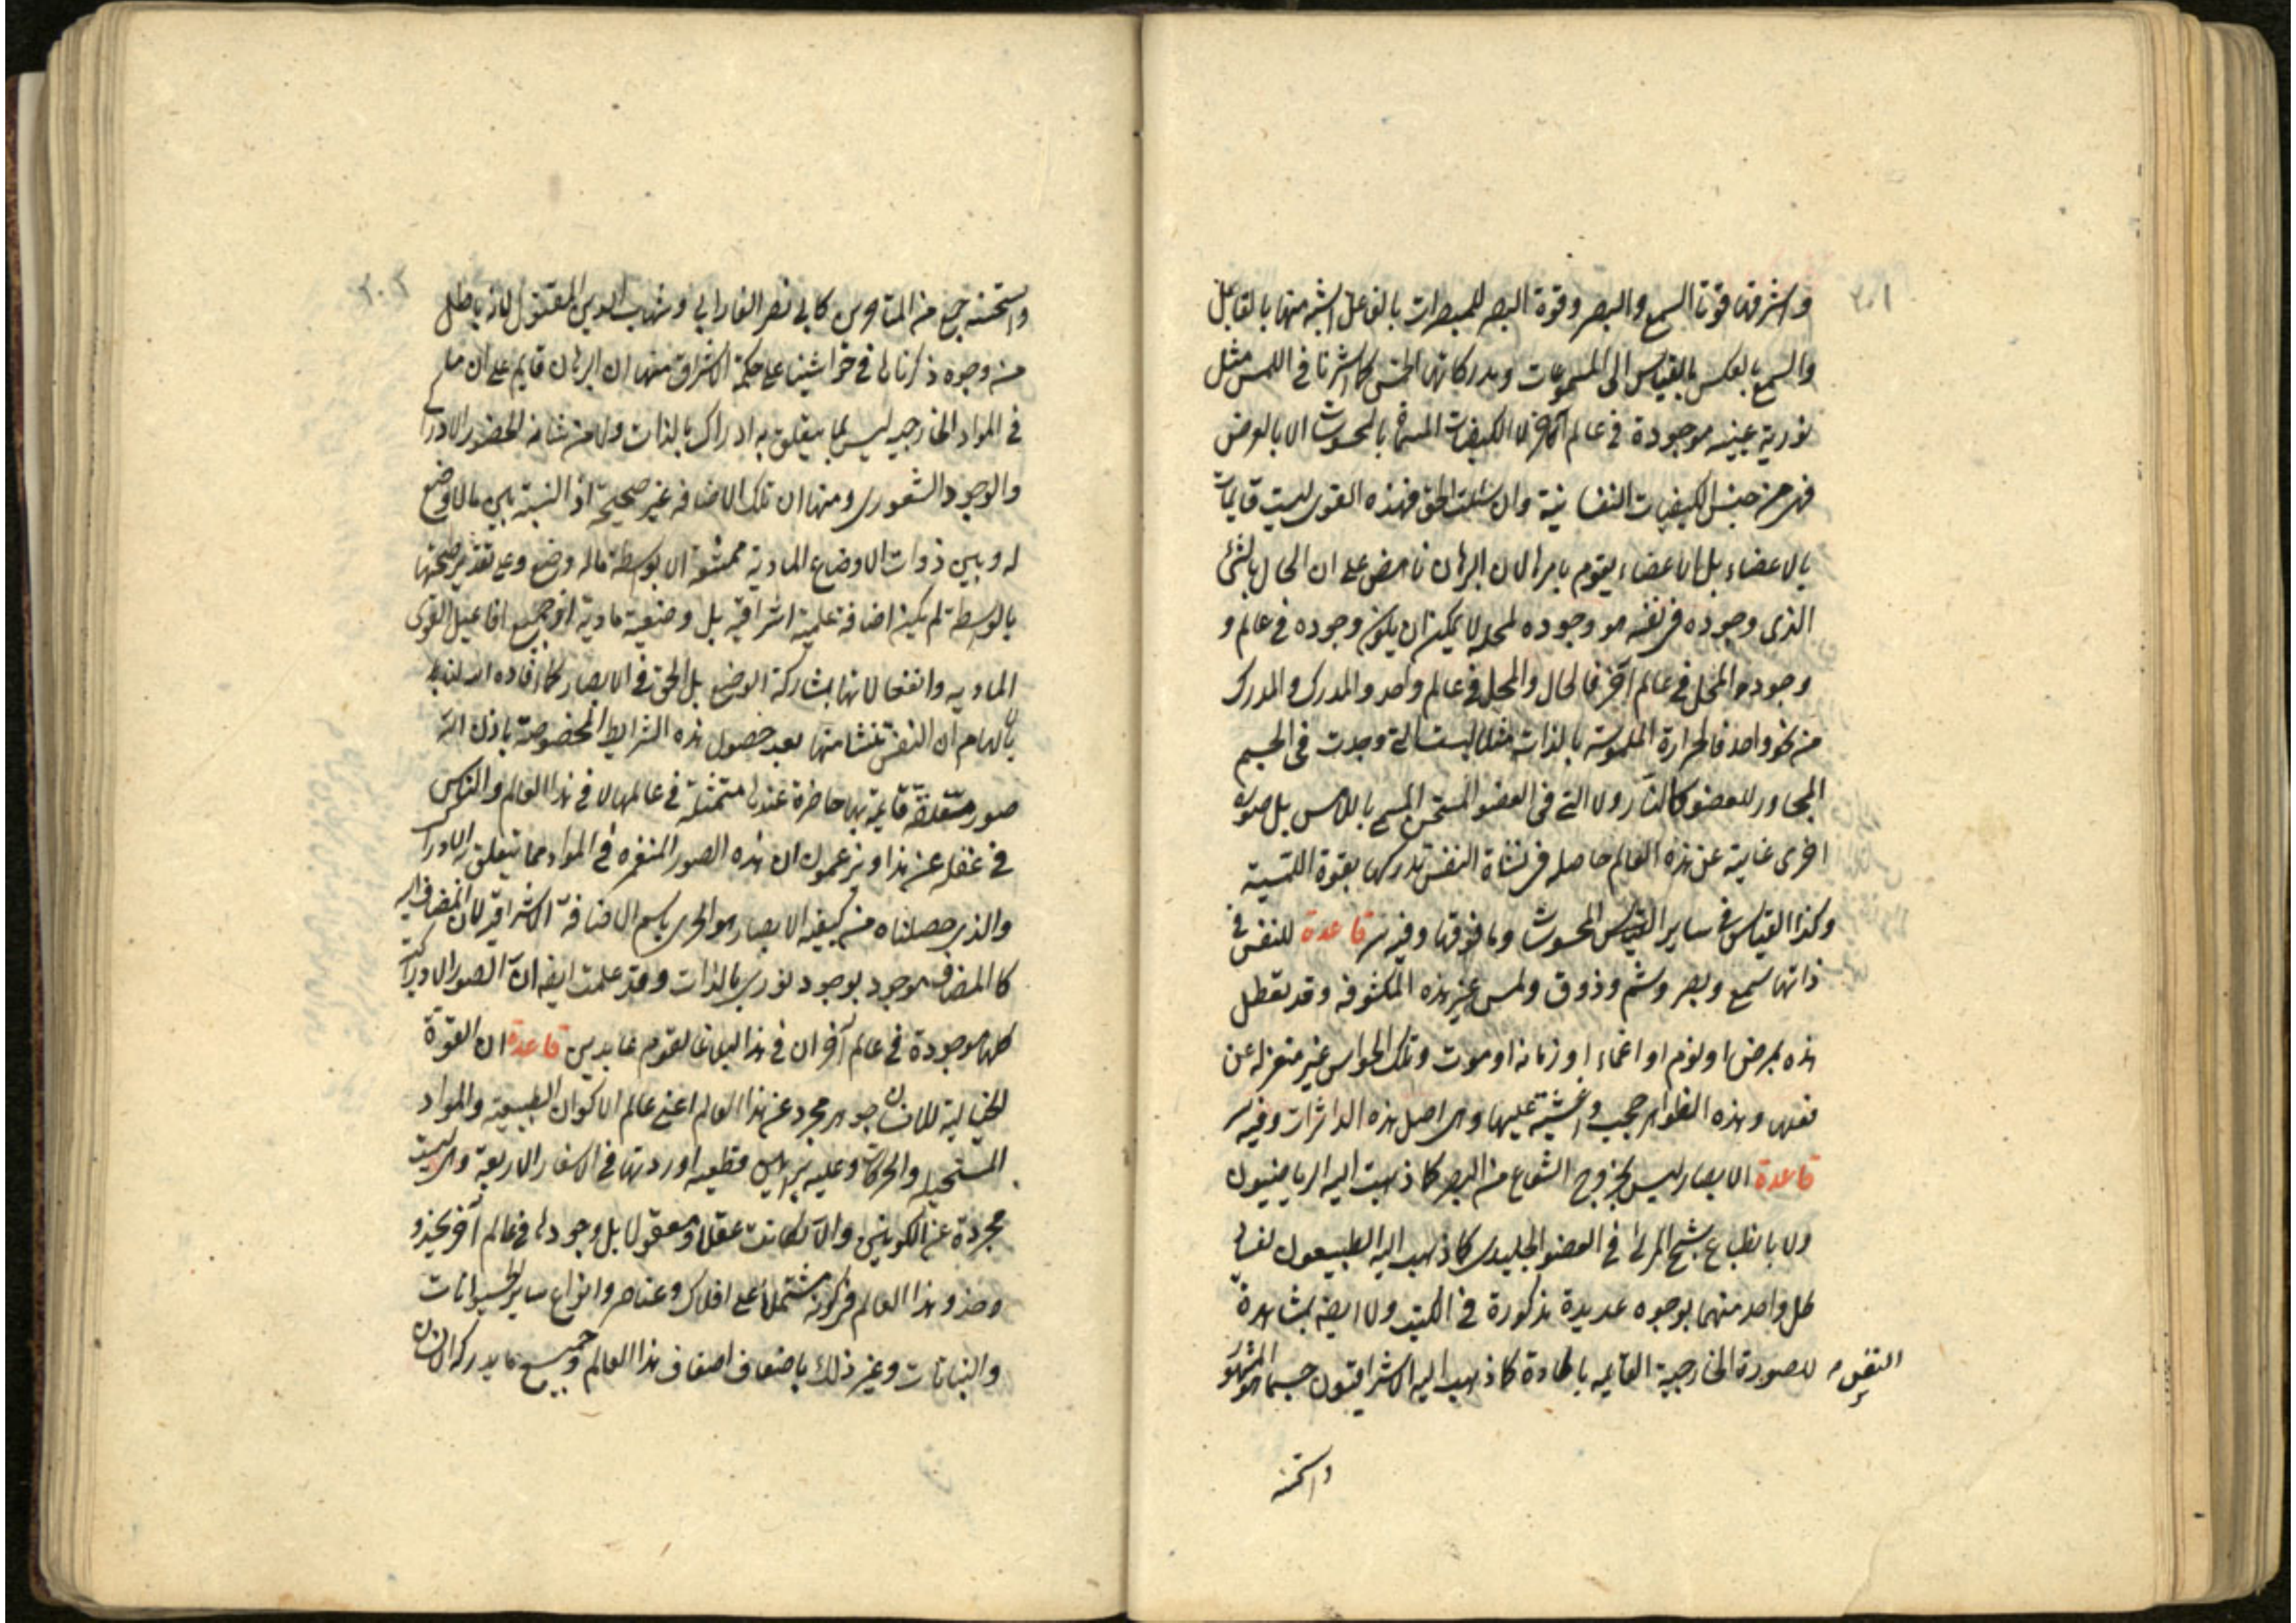 ٢٠١
واشرفها قوتا السمع والبصر وقوة البصر للمبصرات بالفاعل اشبه منها بالقابل
والسمع بالعكس بالقياس الى المسموعات ومدركاتها الخمس كما اشرنا في اللمس مثل
نورية غيبية موجودة في عالم آخر لا الكيفيات المسماة بالمحسوسات الا بالعرض
فهى من جنس الكيفيات النفسانية وان سئلت الحق فهذه القوى ليست قايمات
بالاعضاء بل الاعضاء يقوم بامرها لان البرهان ناهض على ان الحال بالشئ
الذى وجوده فى نفسه هو وجوده لمحله لا يمكن ان يكون وجوده في عالم و
وجود المحل في عالم آخر فالحال والمحل في عالم واحد والمدرك والمدرك
من نحو واحد فالحرارة الملموسة بالذات مثلا ليست التى وجدت فى الجسم
المجاور للعضو كالنار ولا التى فى العضو المتسخن المسمى باللامس بل صورة
اخرى غايبة عن هذه العالم حاصله فى نشاة النفس تدركها بقوة اللمسية
وكذا القياس فى ساير المحسوسات وما فوقها وفيه سر قاعدة للنفس فى
ذاتها سمع وبصر وشم وذوق ولمس غير هذه المكشوفه وقد تعطل
هذه بمرض او نوم او اغماء او زمانه او موت وتلك الحواس غير منعزله عن
فعلها وهذه الظواهر حجب واغشية عليها وهى اصل هذه الداثرات وفيه سر
قاعدة الابصار ليس بخروج الشعاع من البصر كما ذهبت اليه الرياضيون
ولا بانطباع شبح المرئى في العضو الجليدى كما ذهب اليه الطبيعيون لفساد
كل واحد منهما بوجوه عديدة مذكورة في الكتب ولا ايضه بمشاهدة
النفس للصورة الخارجية القايمه بالمادة كما ذهب اليه الاشراقيون حسبما هو المشهور
واستحسنه
٢٠٢
واستحسنه جمع من المتاخرين كابي نصر الفارابي وشهاب الدين المقتول لانه باطل
من وجوه ذكرناها في حواشينا على حكمة الاشراق منها ان البرهان قايم على ان ما
في المواد الخارجيه ليس مما يتعلق به ادراك بالذات ولا من شانه الحضور الادراكى
والوجود الشعورى ومنها ان تلك الاضافه غير صحيحة اذ النسبة بين ما لا وضع
له وبين ذوات الاوضاع المادية ممتنعة الا بواسطة ماله وضع وعلى تقدير صحتها
بالواسطه لم يكن اضافة علمية اشراقية بل وضعية مادية اذ جميع افاعيل القوى
الماديه وانفعالاتها بمشاركة الوضع بل الحق في الابصار كما افاده الله لنا
بالهام ان النفس تنشا منها بعد حصول هذه الشرايط المخصوصة باذن الله
صور معلقة قايمة بها حاضرة عندها متمثلة في عالمها لا في هذا العالم والناس
في غفله عن هذا ويزعمون ان هذه الصور المنغمره في المواد مما يتعلق به الادراك
والذى حصلناه من كيفية الابصار هو احرى باسم الاضافة الاشراقية لان المضاف اليه
كالمضاف موجود بوجود نورى بالذات وقد علمت ايضه ان الصور الادراكية
كلها موجودة في عالم آخر ان في هذا لبلاغا لقوم عابدين قاعدة ان القوة
الخيالية للانسان جوهر مجرد عن هذا العالم اعنى عالم الاكوان الطبيعية والمواد
المستحيله والحركات وعليه براهين قطعيه اوردتها في الاسفار الاربعة وهى ليست
مجردة عن الكونين والا لكانت عقلا ومعقولا بل وجودها في عالم آخر يحذو
حذو هذا العالم فى كونه مشتملا على افلاك وعناصر وانواع ساير الحيوانات
والنباتات وغير ذلك باضعاف اضعاف هذا العالم وجميع ما يدركه الانسان